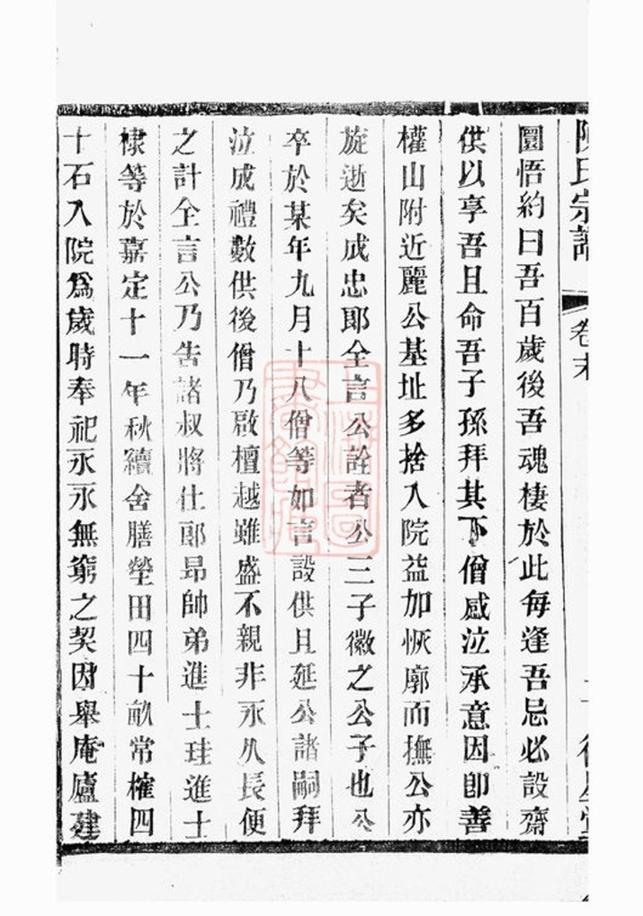 陳氏宗譜
卷末
圜悟約曰吾百歲後吾魂棲於此每逢吾忌必設齋
供以享吾且命吾子孫拜其下僧感泣承意因卽善
權山附近麗公基址多捨入院益加恢廓而撫公亦
旋逝矣成忠郎全言公詮者公三子徽之公子也公
卒於某年九月十八僧等如言設供且延公諸嗣拜
泣成禮數供後僧乃啟檀越雖盛不親非永久長便
之計全言公乃告諸叔將仕郎昂帥弟進士珪進士
棣等於嘉定十一年秋續舍膳塋田四十畝常榷四
十石入院爲歲時奉祀永永無窮之契因舉庵廬建